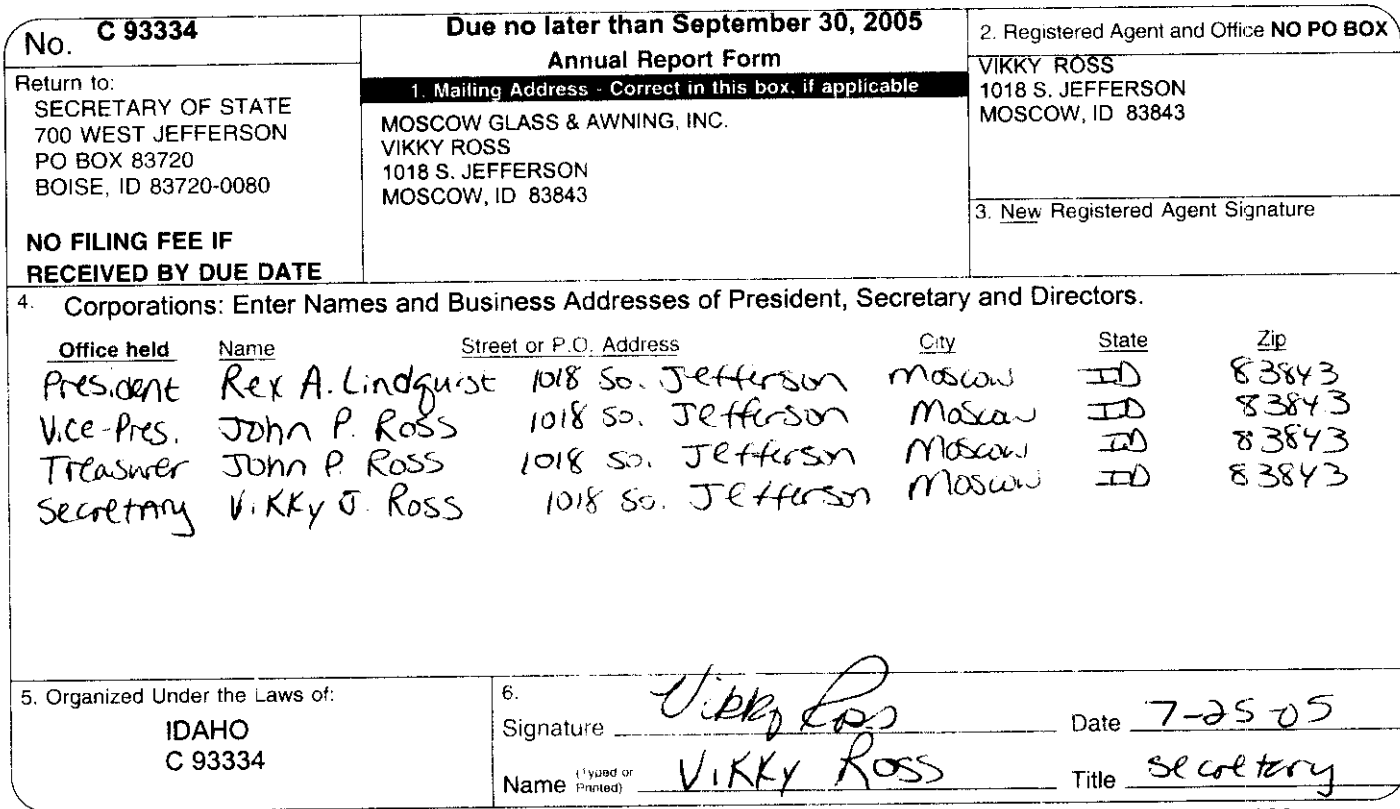 No. C 93334
Return to:
SECRETARY OF STATE
700 WEST JEFFERSON
PO BOX 83720
BOISE, ID 83720-0080
NO FILING FEE IF
RECEIVED BY DUE DATE
Due no later than September 30, 2005
Annual Report Form
1. Mailing Address - Correct in this box, if applicable
MOSCOW GLASS & AWNING, INC.
VIKKY ROSS
1018 S. JEFFERSON
MOSCOW, ID 83843
2. Registered Agent and Office NO PO BOX
VIKKY ROSS
1018 S. JEFFERSON
MOSCOW, ID 83843
3. New Registered Agent Signature
4. Corporations: Enter Names and Business Addresses of President, Secretary and Directors.
Office held Name Street or P.O. Address City State Zip
President Rex A. Lindquist 1018 So. Jefferson Moscow ID 83843
Vice-Pres. John P. Ross 1018 So. Jefferson Moscow ID 83843
Treasurer John P. Ross 1018 So. Jefferson Moscow ID 83843
Secretary Vikky J. Ross 1018 So. Jefferson Moscow ID 83843
5. Organized Under the Laws of:
IDAHO
C 93334
6.
Signature Vikky Ross Date 7-25-05
Name (Typed or Printed) Vikky Ross Title secretary